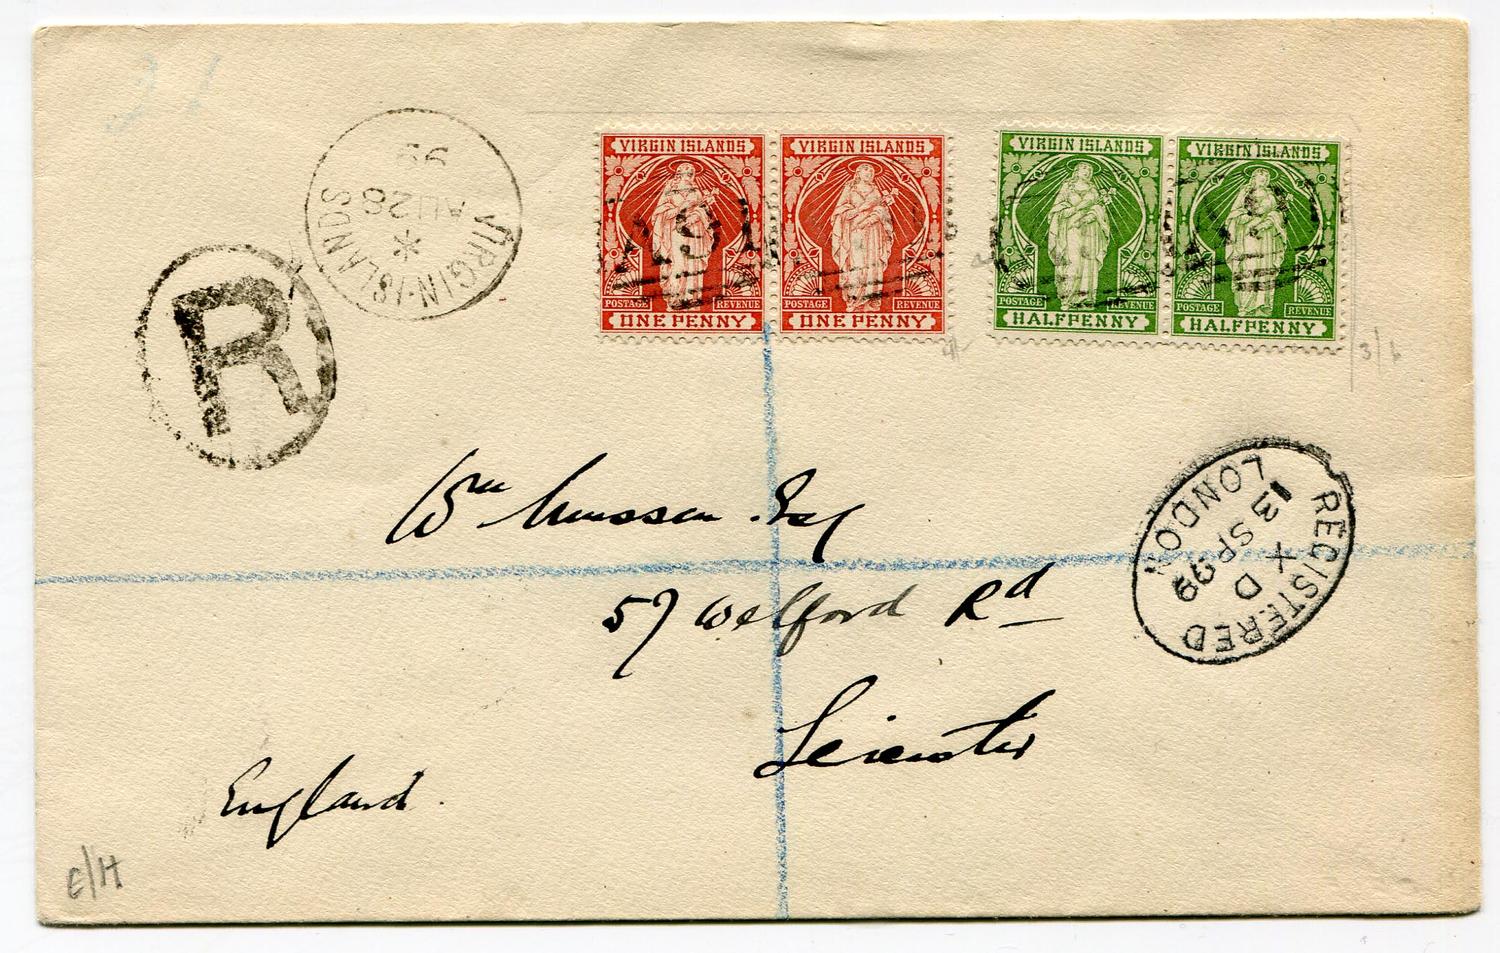 VIRGIN·ISLANDS
*
AU 28
99
R
VIRGIN ISLANDS
POSTAGE REVENUE
ONE PENNY
VIRGIN ISLANDS
POSTAGE REVENUE
ONE PENNY
VIRGIN ISLANDS
POSTAGE REVENUE
HALFPENNY
VIRGIN ISLANDS
POSTAGE REVENUE
HALFPENNY
A91
4/-
3/6
Wm Musson Esq
57 Welford Rd
Leicester
England.
REGISTERED
D
X
13 SP 99
LONDON
E/H